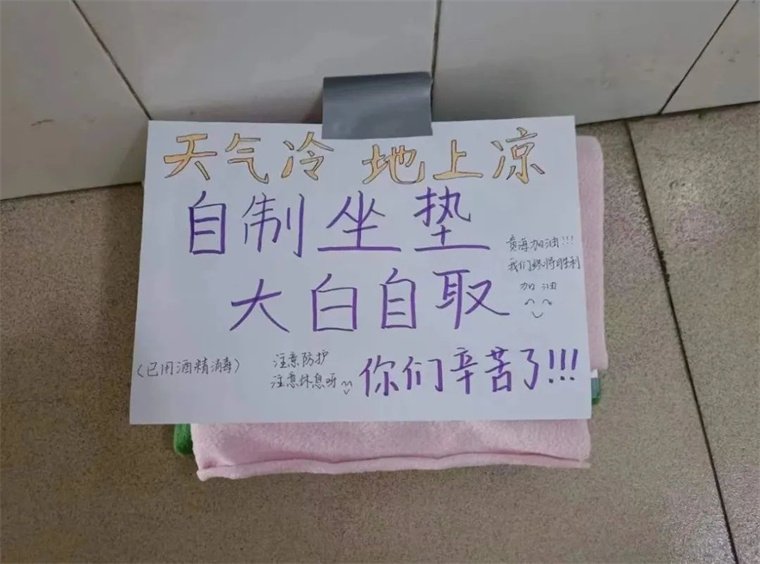 天气冷 地上凉
自制坐垫
大白自取
黄海加油!!!
我们终将胜利
加油
(已用酒精消毒)
注意防护
注意休息呀
你们辛苦了!!!